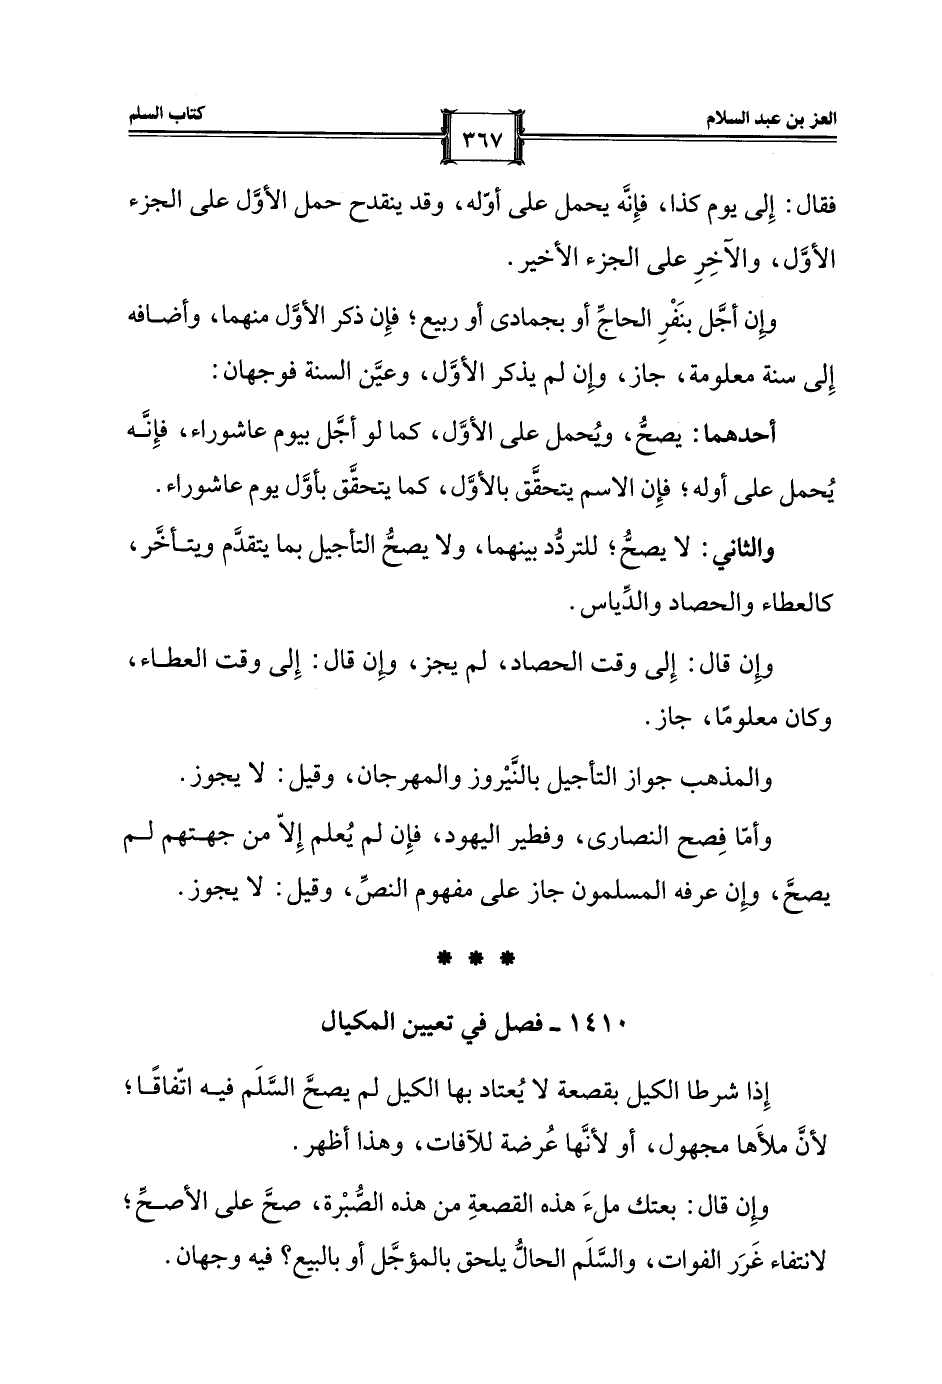 العز بن عبد السلام
٣٦٧
كتاب السلم
فقال: إلى يوم كذا، فإنَّه يحمل على أوّله، وقد ينقدح حمل الأوَّل على الجزء
الأوَّل، والآخِرِ على الجزء الأخير.
وإن أجَّل بنَفْرِ الحاجِّ أو بجمادى أو ربيع؛ فإن ذكر الأوَّل منهما، وأضافه
إلى سنة معلومة، جاز، وإن لم يذكر الأوَّل، وعيَّن السنة فوجهان:
أحدهما: يصحُّ، ويُحمل على الأوَّل، كما لو أجَّل بيوم عاشوراء، فإنَّه
يُحمل على أوله؛ فإن الاسم يتحقَّق بالأوَّل، كما يتحقَّق بأوَّل يوم عاشوراء.
والثاني: لا يصحُّ؛ للتردُّد بينهما، ولا يصحُّ التأجيل بما يتقدَّم ويتأخَّر،
كالعطاء والحصاد والدِّياس.
وإن قال: إلى وقت الحصاد، لم يجز، وإن قال: إلى وقت العطاء،
وكان معلومًا، جاز.
والمذهب جواز التأجيل بالنَّيْروز والمهرجان، وقيل: لا يجوز.
وأمّا فِصح النصارى، وفطير اليهود، فإن لم يُعلم إلاّ من جهتهم لم
يصحَّ، وإن عرفه المسلمون جاز على مفهوم النصِّ، وقيل: لا يجوز.
* * *
١٤١٠ ـ فصل في تعيين المكيال
إذا شرطا الكيل بقصعة لا يُعتاد بها الكيل لم يصحَّ السَّلَم فيه اتّفاقًا؛
لأنَّ ملأَها مجهول، أو لأنَّها عُرضة للآفات، وهذا أظهر.
وإن قال: بعتك ملءَ هذه القصعةِ من هذه الصُّبْرة، صحَّ على الأصحِّ؛
لانتفاء غَرَر الفوات، والسَّلَم الحالُّ يلحق بالمؤجَّل أو بالبيع؟ فيه وجهان.